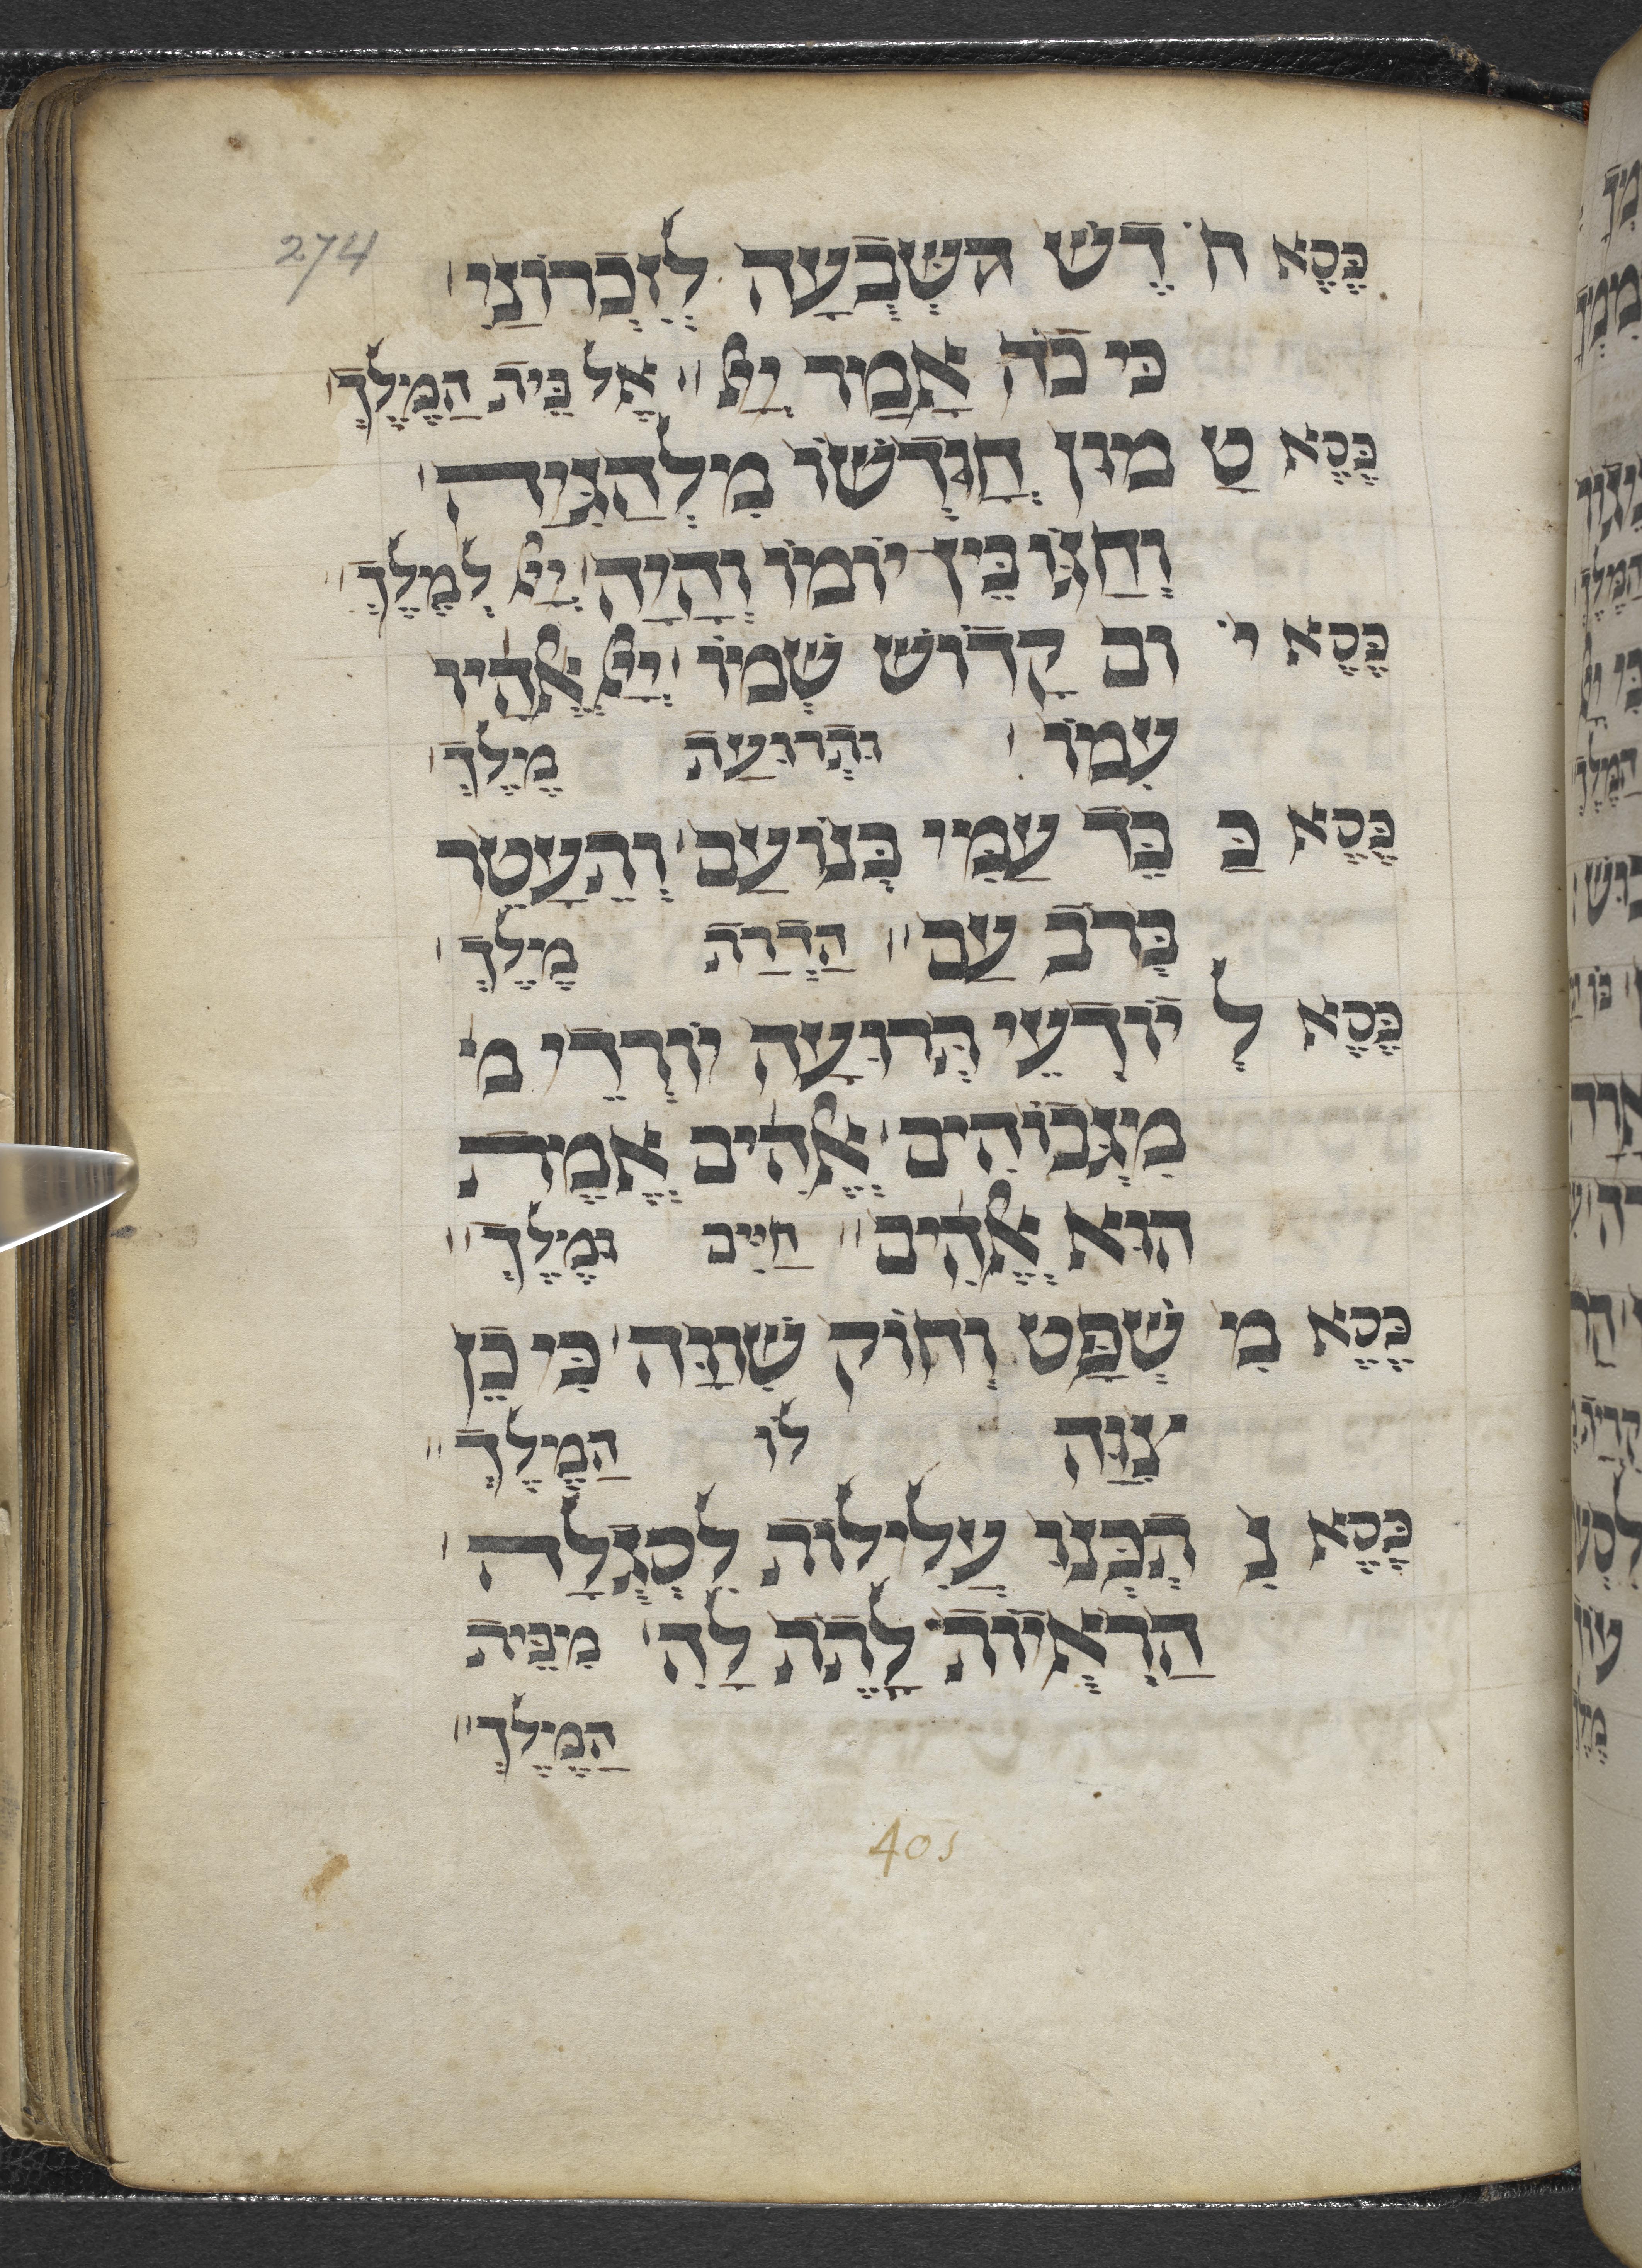 274
בַּכֶּסֶא חֹ דֶשׁ הַשְּׁבַעָה לְזָכְרוֹנַי׳
כִּי כֹה אָמַר יְיָ׳׳ אֶל בֵּית הַמֶּלֶךְ׳
בַּכֶּסֶא טָ מוּן חָוּדְשׁוֹ מִלְהַגִּיהַּ׳
וְחַגּוֹ בֵּין יוֹמוֹ וְהָיָה׳ יְיָ לְמֶלֶךְ׳׳
בַּכֶּסֶא י׳ וֹם קָדוֹשׁ שְׁמוֹ׳ יְיָ אֱלֹהָיו
עִמּוֹ׳ וּתְרוּעַת מֶלֶךְ׳
בַּכֶּסֶא כַּ בֵּד עַמִּי בְּנוֹעַם׳ וְהֵעָטֵר
בְּרֹב עַם׳׳ הַדְרַת מֶלֶךְ׳
בַּכֶּסֶא לְ יוֹדְעֵי תְרוּעָה יוֹרְדֵי מ׳
מִגְּבוֹהִים׳ אֱלֹהִים אֱמֶת
הוּא אֱלֹהִים׳׳ חַיִּים וּמֶלֶךְ׳׳
בַּכֶּסֶא מִ שְׁפָּט וְחוֹק שִׁוָּה׳ כִּי כֵן
צִוָּה לוֹ הַמֶּלֶךְ׳׳
בַּכֶּסֶא נִ תְכְּנוּ עֲלִילוֹת לִסְגֻלָּה׳
הַרְאוּיוֹת לָתֶת לָהּ׳ מִבֵּית
הַמֶּלֶךְ׳׳
405